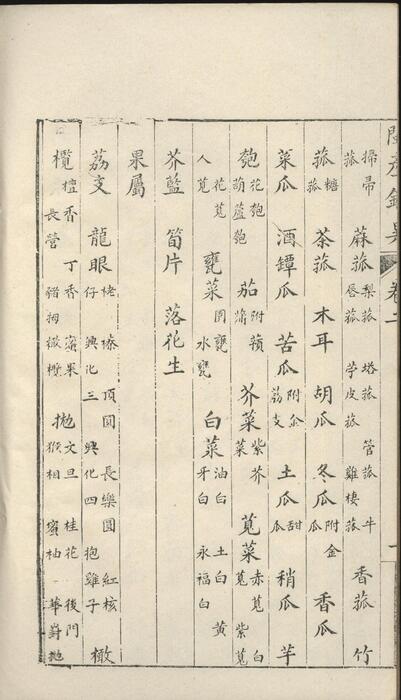 閩產錄異 卷二 一
掃帚菰 蔴菰 梨菰 塔菰 管菰 牛唇菰 芋皮菰 雞棲菰 香菰 竹
菰 糖菰 茶菰 木耳 胡瓜 冬瓜 附金瓜 香瓜
菜瓜 酒罈瓜 苦瓜 附金荔支 土瓜 甜瓜 稍瓜 芋
匏 花匏 葫蘆匏 茄 附蘋 芥菜 紫芥菜 莧菜 赤莧 白莧 紫莧
人莧 花莧 甕菜 同甕 水甕 白菜 油白 土白 黃牙白 永福白
芥藍 筍片 落花生
果屬
荔支 龍眼 頂圓 長樂圓 紅核仔 興化三 興化四 抱雞子 橄
欖 檀香 丁香 蜜果 長營 拋 文旦 桂花 後門 猴柑 蜜柚